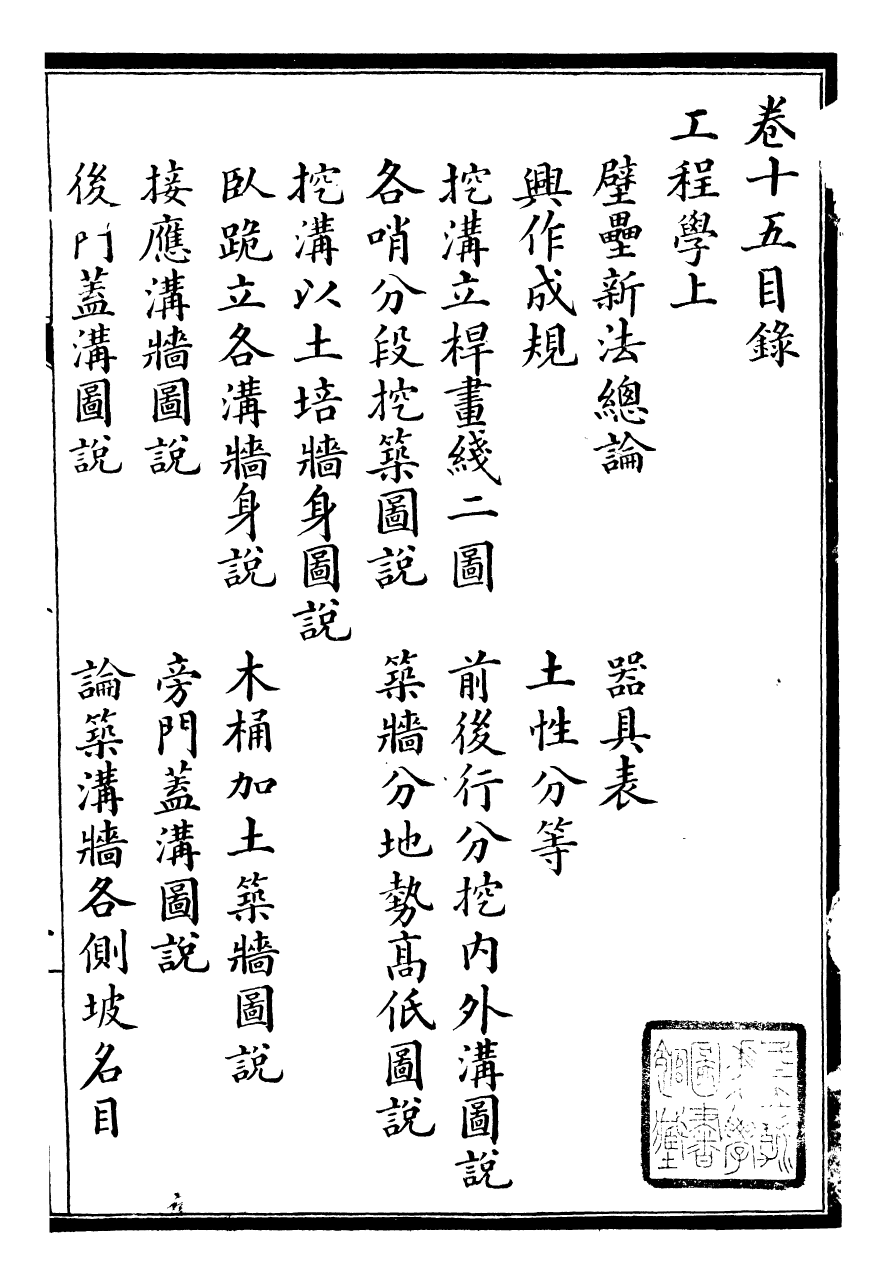 卷十五目錄
工程學上
壁壘新法總論　器具表
興作成規　土性分等
挖溝立桿畫綫二圖　前後行分挖內外溝圖說
各哨分段挖築圖說　築牆分地勢髙低圖說
挖溝以土培牆身圖說
臥跪立各溝牆身說　木桶加土築牆圖說
接應溝牆圖說　旁門蓋溝圖說
後門蓋溝圖說　論築溝牆各側坡名目
圖書